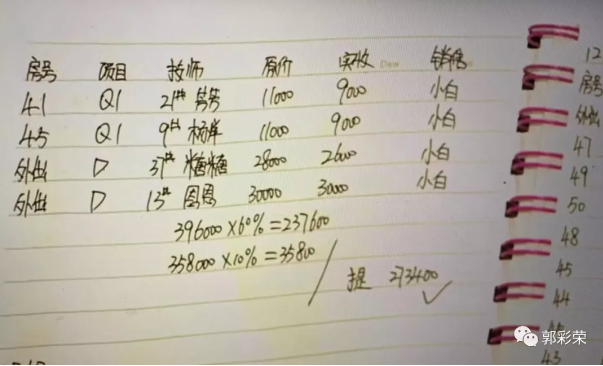 房号 项目 技师 原价 实收 销售
41 Q1 21# 11000 9000 小白
45 Q1 9# 杨洋 11000 9000 小白
外出 D 37# 糖糖 28000 26000 小白
外出 D 13# 圆圆 30000 30000 小白
396000×60%=237600
358000×10%=35800
提 273400 ✓
12
房号
外出
47
49
50
48
45
44
43
郭彩荣